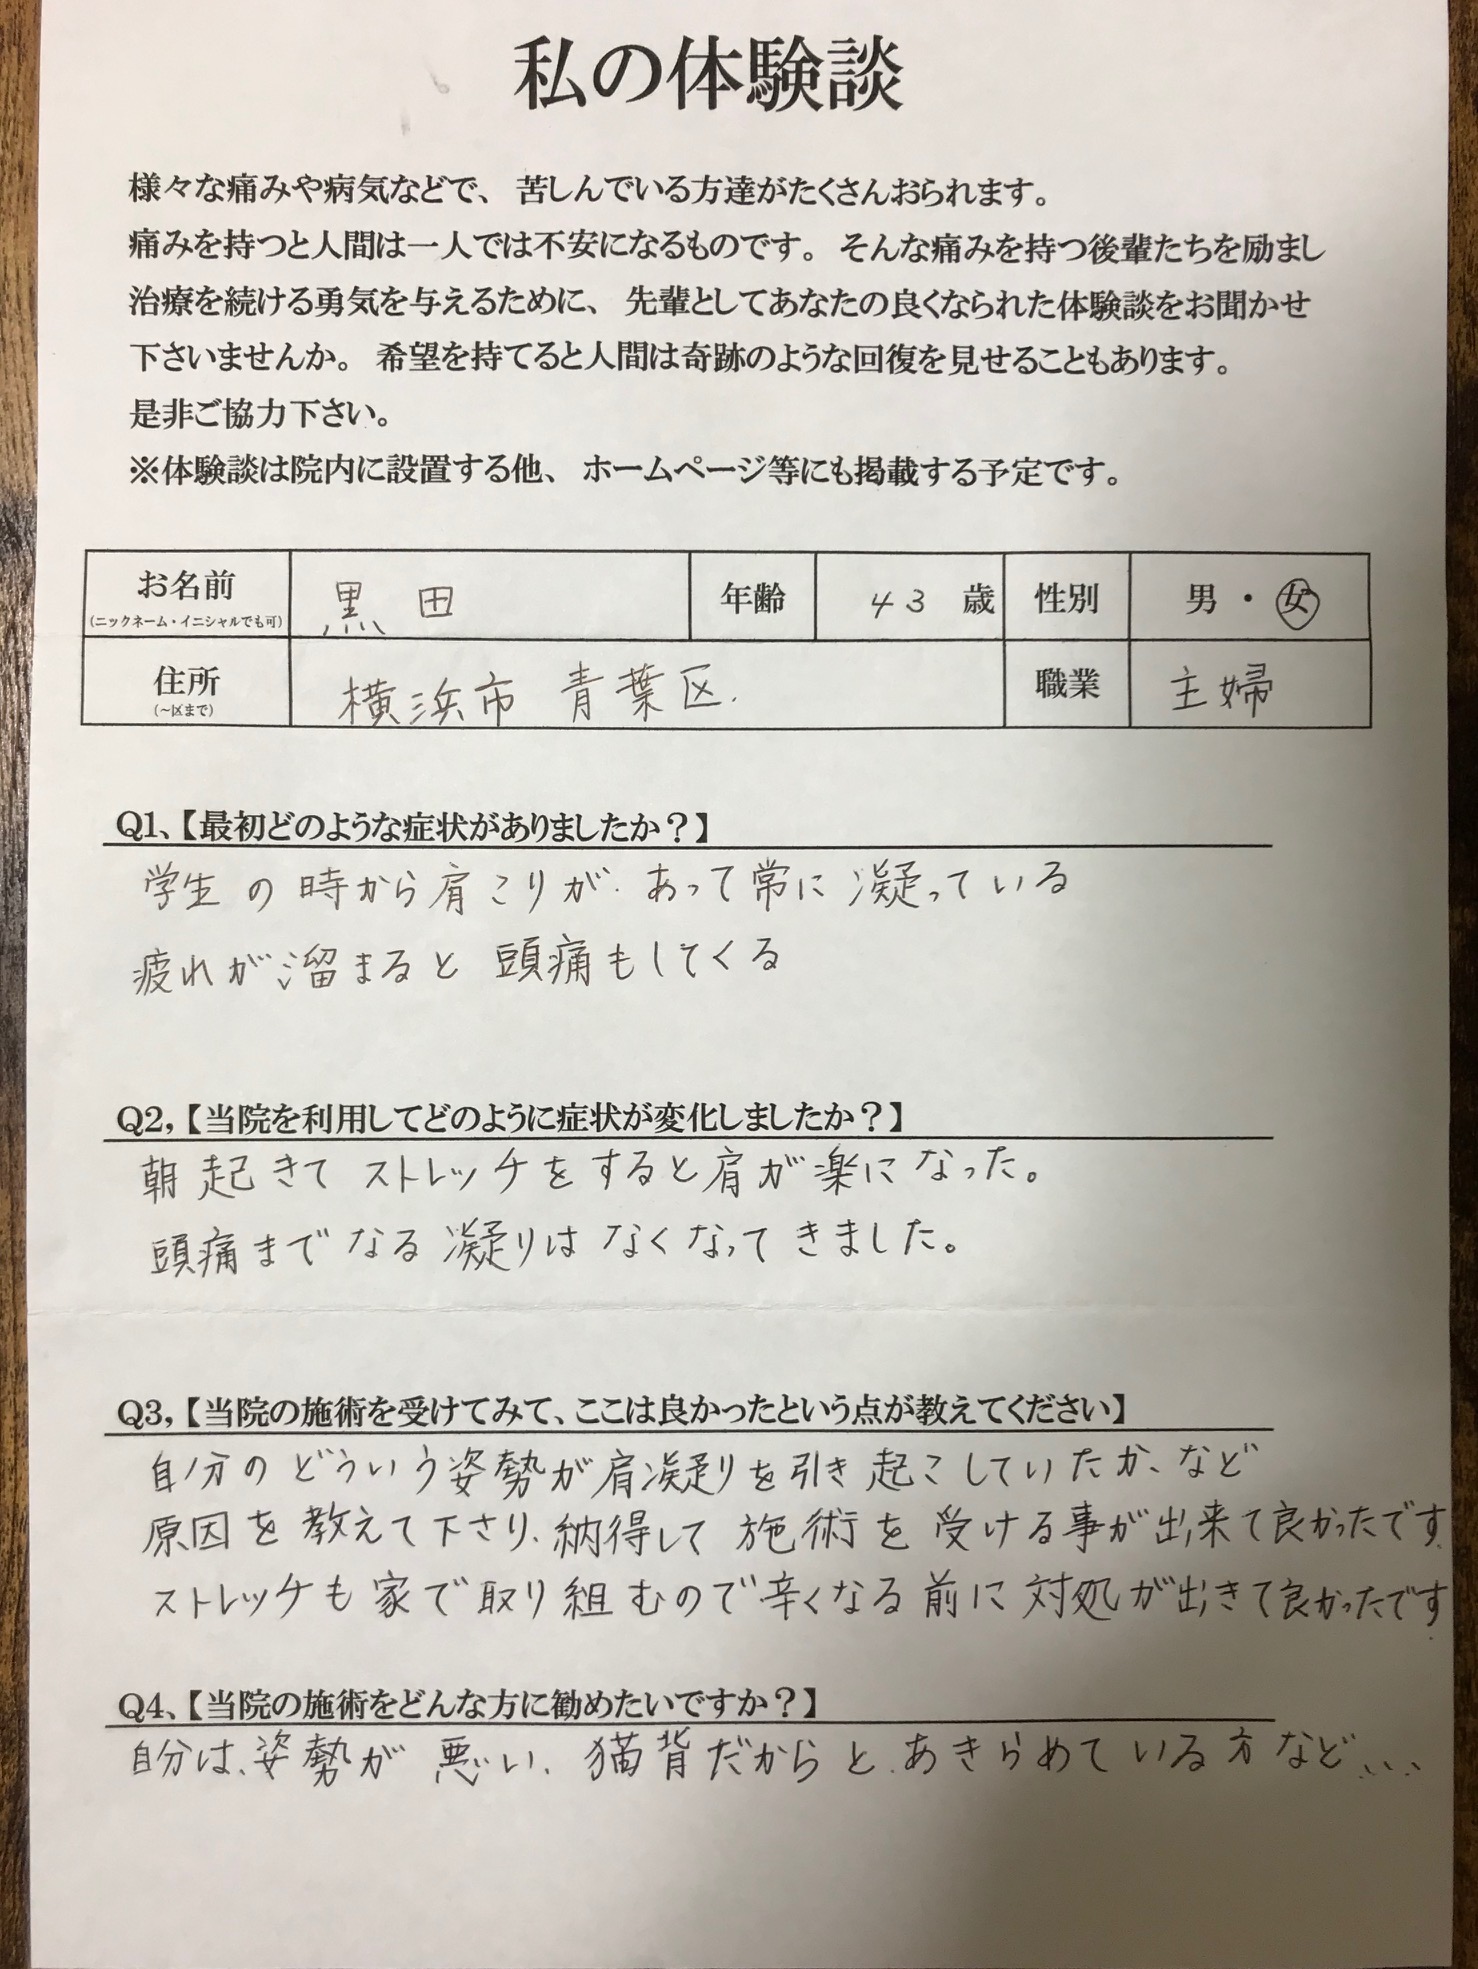 私の体験談
様々な痛みや病気などで、苦しんでいる方達がたくさんおられます。
痛みを持つと人間は一人では不安になるものです。そんな痛みを持つ後輩たちを励まし
治療を続ける勇気を与えるために、先輩としてあなたの良くなられた体験談をお聞かせ
下さいませんか。希望を持てると人間は奇跡のような回復を見せることもあります。
是非ご協力下さい。
※体験談は院内に設置する他、ホームページ等にも掲載する予定です。
お名前 黒田 年齢 43歳 性別 男・女
(ニックネーム・イニシャルでも可)
住所 横浜市 青葉区. 職業 主婦
(~区まで)
Q1、【最初どのような症状がありましたか？】
学生の時から肩こりが、あって常に凝っている
疲れが溜まると頭痛もしてくる
Q2,【当院を利用してどのように症状が変化しましたか？】
朝起きてストレッチをすると肩が楽になった。
頭痛までなる凝りはなくなってきました。
Q3,【当院の施術を受けてみて、ここは良かったという点が教えてください】
自分のどういう姿勢が肩凝りを引き起こしていたか、など
原因を教えて下さり、納得して施術を受ける事が出来て良かったです.
ストレッチも家で取り組むので辛くなる前に対処が出きて良かったです.
Q4、【当院の施術をどんな方に勧めたいですか？】
自分は、姿勢が悪い、猫背だからと、あきらめている方など、、、